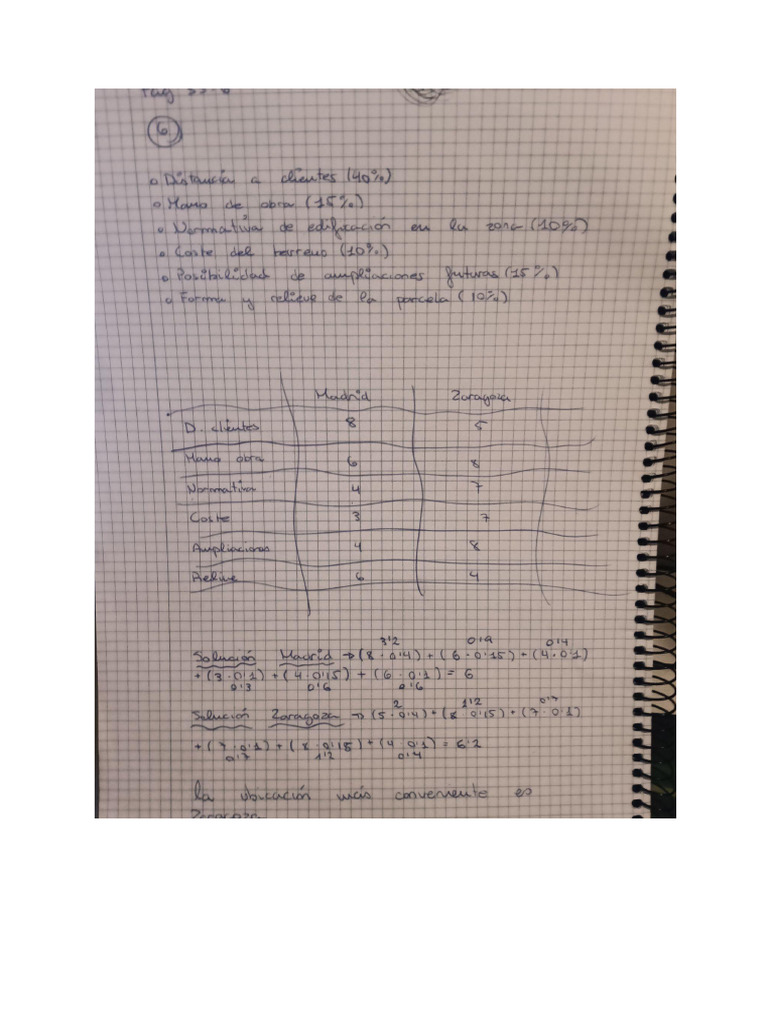 Pag
6
o Distancia a clientes (40%)
o Mano de obra (15%)
o Normativa de edificación en la zona (10%)
o Coste del terreno (10%)
o Posibilidad de ampliaciones futuras (15%)
o Forma y relieve de la parcela (10%)
Madrid Zaragoza
D. clientes 8 5
Mano obra 6 8
Normativa 4 7
Coste 3 7
Ampliaciones 4 8
Relive 6 4
3'2 0'9 0'4
Solución Madrid → (8 · 0'4) + (6 · 0'15) + (4 · 0'1)
+ (3 · 0'1) + (4 · 0'15) + (6 · 0'1) = 6
0'3 0'6 0'6
2 1'2 0'7
Solución Zaragoza → (5 · 0'4) + (8 · 0'15) + (7 · 0'1)
+ (7 · 0'1) + (8 · 0'15) + (4 · 0'1) = 6'2
0'7 1'2 0'4
la ubicación más conveniente es
Zaragoza